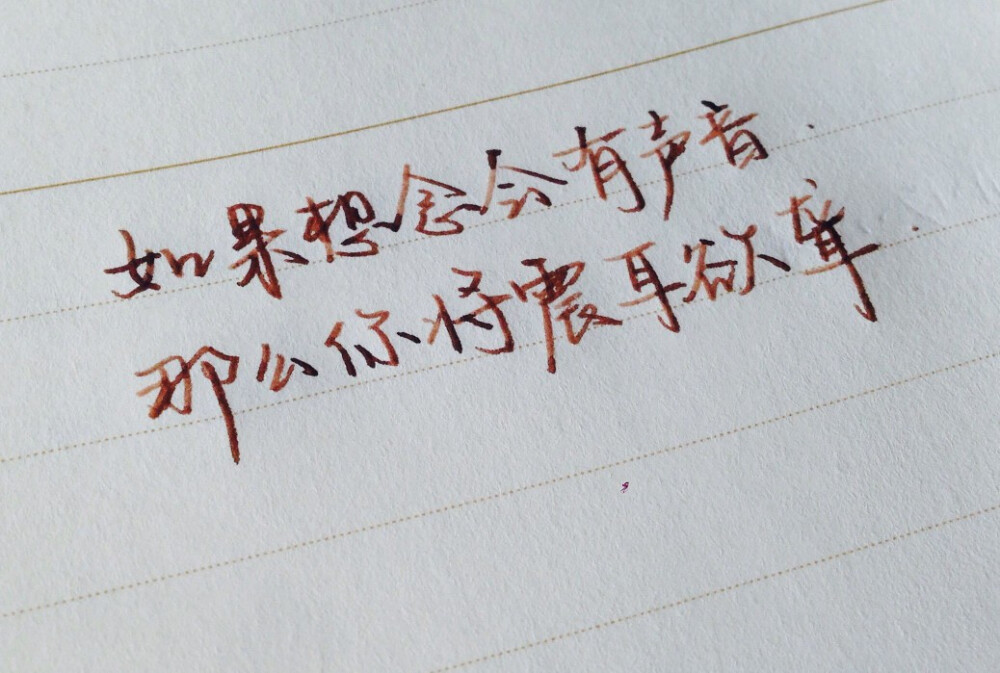 如果想念会有声音.
那么你将震耳欲聋.